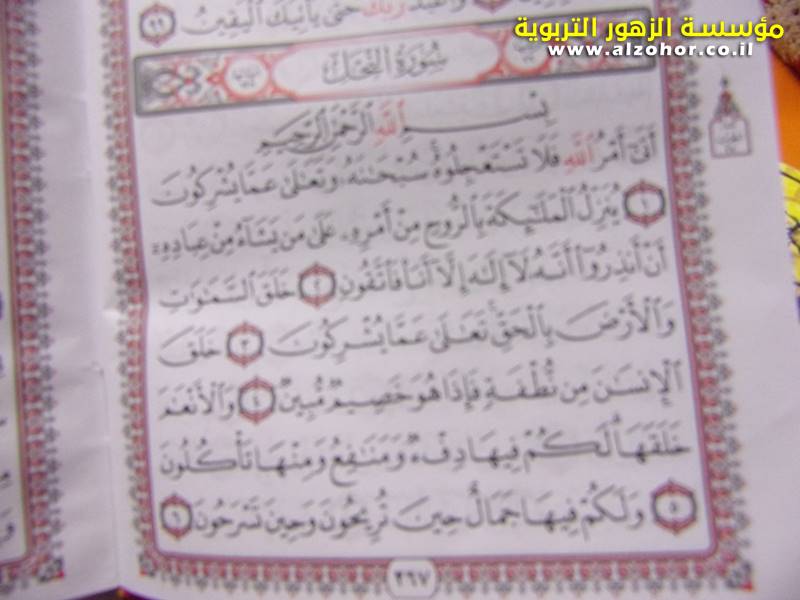 مؤسسة الزهور التربوية
www.alzohor.co.il
وَاعْبُدْ رَبَّكَ حَتَّىٰ يَأْتِيَكَ الْيَقِينُ ٩٩
سُورَةُ النَّحْلِ
بِسْمِ اللَّهِ الرَّحْمَٰنِ الرَّحِيمِ
أَتَىٰٓ أَمْرُ اللَّهِ فَلَا تَسْتَعْجِلُوهُ سُبْحَٰنَهُۥ وَتَعَٰلَىٰ عَمَّا يُشْرِكُونَ
١ يُنَزِّلُ الْمَلَٰٓئِكَةَ بِالرُّوحِ مِنْ أَمْرِهِۦ عَلَىٰ مَن يَشَآءُ مِنْ عِبَادِهِۦٓ
أَنْ أَنذِرُوٓا۟ أَنَّهُۥ لَآ إِلَٰهَ إِلَّآ أَنَا۠ فَاتَّقُونِ ٢ خَلَقَ السَّمَٰوَٰتِ
وَالْأَرْضَ بِالْحَقِّ تَعَٰلَىٰ عَمَّا يُشْرِكُونَ ٣ خَلَقَ
الْإِنسَٰنَ مِن نُّطْفَةٍ فَإِذَا هُوَ خَصِيمٌ مُّبِينٌ ٤ وَالْأَنْعَٰمَ
خَلَقَهَا لَكُمْ فِيهَا دِفْءٌ وَمَنَٰفِعُ وَمِنْهَا تَأْكُلُونَ
٥ وَلَكُمْ فِيهَا جَمَالٌ حِينَ تُرِيحُونَ وَحِينَ تَسْرَحُونَ ٦
٢٦٧